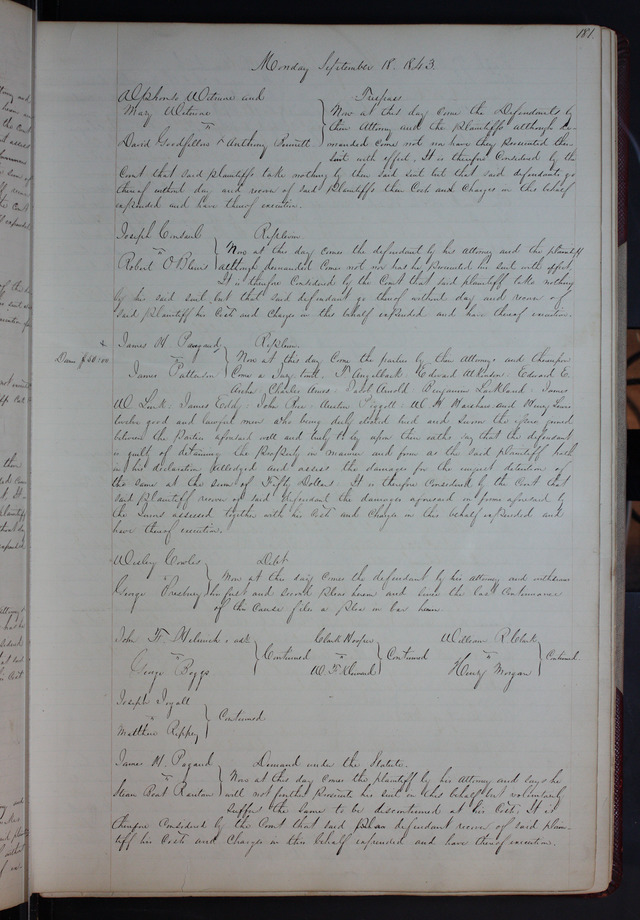 181.
Monday September 18. 1843.
Alphonso Wetmore and
Mary Wetmore
vs
David Goodfellow & Anthony Bennett
Trespass
Now at this day come the Defendants by
their Attorney and the Plaintiffs although de-
manded come not nor have they prosecuted their
Suit with effect. It is therefore Considered by the
Court that said plaintiffs take nothing by their said suit but that said defendants go
thereof without day and recover of said Plaintiffs their Cost and Charges in this behalf
expended and have thereof execution.
Joseph
vs
Robert O'Blenis
Replevin.
Now at this day comes the defendant by his attorney and the plaintiff
although demanded comes not nor has he prosecuted his suit with effect.
It is therefore Considered by the Court that said plaintiff take nothing
by his said suit but that said defendant go thereof without day and recover of
said Plaintiff his Cost and Charges in this behalf expended and have thereof execution.
Dam $50.00
James H.
vs
James Patterson
Replevin.
Now at this day Come the parties by their Attorneys and thereupon
Come a Jury towit. Edward Atkinson Edward C.
Charles Ames Arnold Benjamin Lackland James
W. James Eddy John Rice Austin Piggott W. H. and Henry
twelve good and lawful men who being duly elected tried and Sworn the issue joined
between the Parties aforesaid well and truly to try upon their oaths say that the defendant
is guilty of detaining the Property in manner and form as the said plaintiff hath
in his declaration alledged and assess the damages for the unjust detention of
the same at the Sum of Fifty Dollars. It is therefore Considered by the Court that
said Plaintiff recover of said defendant the damages aforesaid in form aforesaid by
the Jurors assessed together with his Cost and Charges in this behalf expended and
have thereof execution.
Wesley Cowles
vs
George Presbury
Debt
Now at this day Comes the defendant by his attorney and withdraws
his first and second Pleas herein and since the last Continuance
of the Cause files a plea in bar herein.
John H.
vs
George Boggs
Continued
Clark Hooper
vs
W. F.
Continued
William R. Clark
vs
Henry Morgan
Continued.
Joseph
vs
Matthew Rippey
Continued
James H.
vs
Steam Boat
Demand under the Statute.
Now at this day comes the plaintiff by his Attorney and says he
will not further prosecute his suit in this behalf but voluntarily
suffers the same to be discontinued at his Cost. It is
therefore Considered by the Court that said defendant recover of said plain-
tiff his Costs and Charges in this behalf expended and have thereof execution.